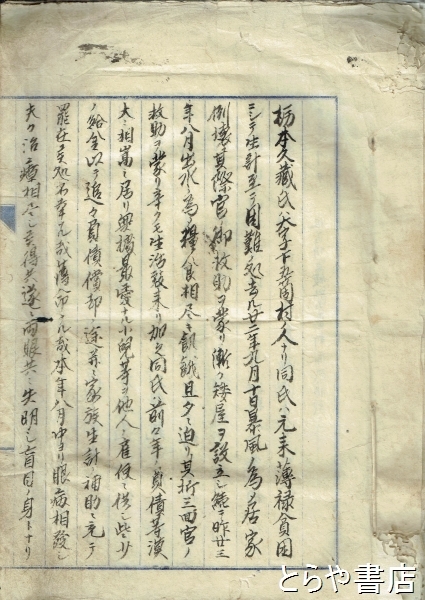 栃本久蔵氏ハ大字下五周村ノ人ナリ同氏ハ元来薄禄貧困
ニシテ生計至テ困難ノ処去ル廿二年九月十日暴風ノ為メ居家
倒壊其際官ノ御救助ヲ蒙リ漸ク矮屋ヲ設立シ然ニ昨廿三
年八月出水ノ為メ糧食相尽キ飢餓且夕ニ迫リ其折三四官ノ
救助ヲ蒙リ辛クモ生活罷来リ加之同氏ハ前々年ヨリ負債等漠
大ニ相嵩ミ居リ無擔最愛ナル小児等ヲ他人ニ雇使ニ供シ些少
ノ給金以テ追々負債償却ノ途并ニ家族生計ノ補助ニ充テ
罷在候処不幸ナル哉薄命ナル哉本年八月中ヨリ眼病相発シ
夫々治療相尽シモ其遂ニ両眼共ニ失明シ盲目ノ身トナリ
とらや書店